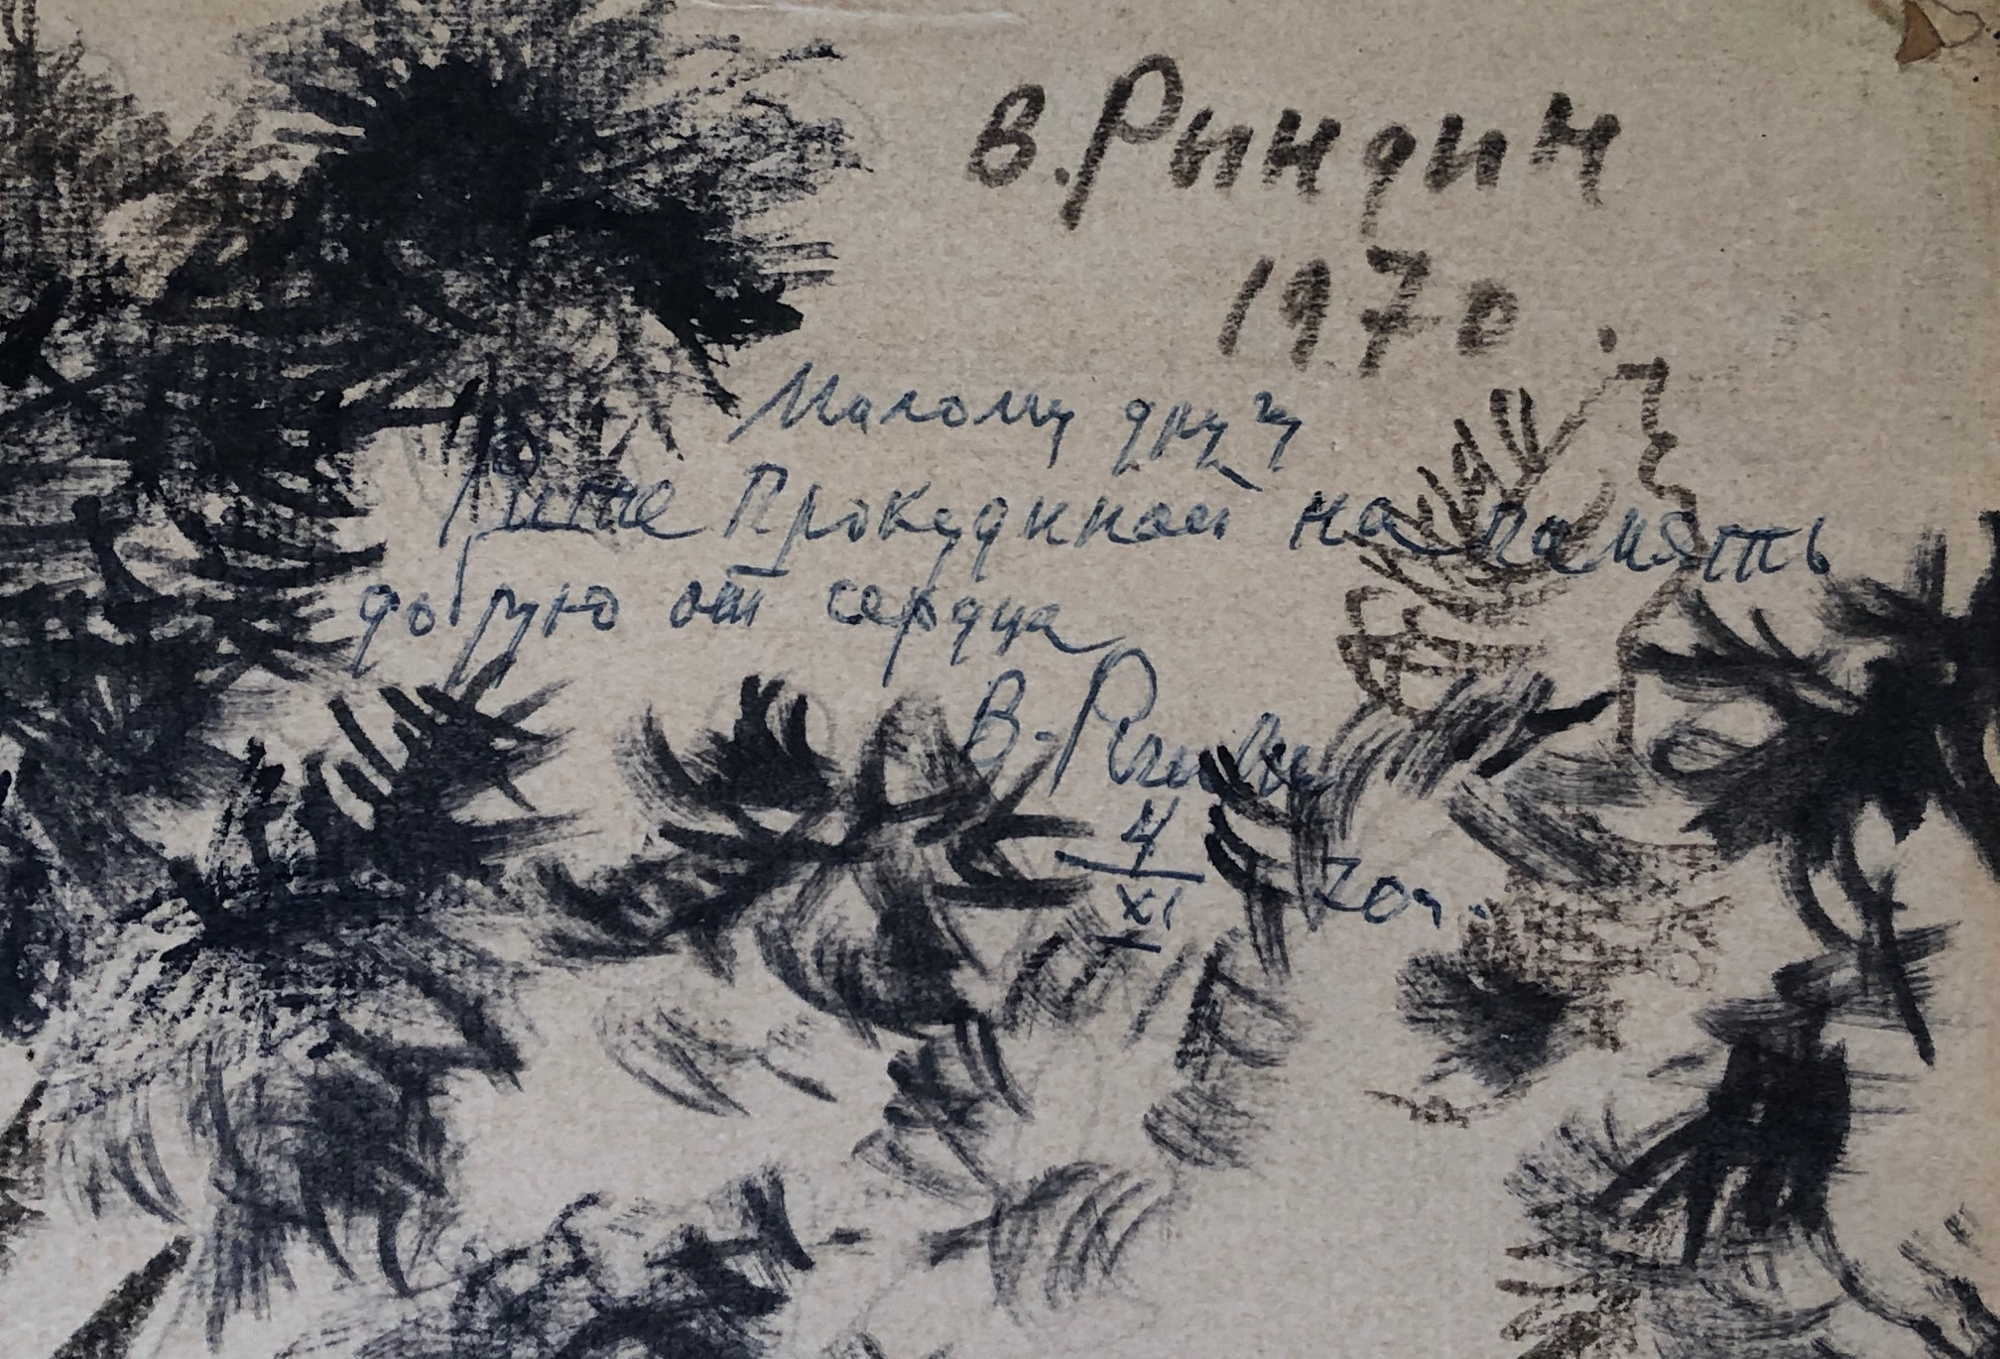 В. Рындин
1970
Милому другу
Рите Прокудиной на память
добрую от сердца
В. Рындин
4
XI 70 г.